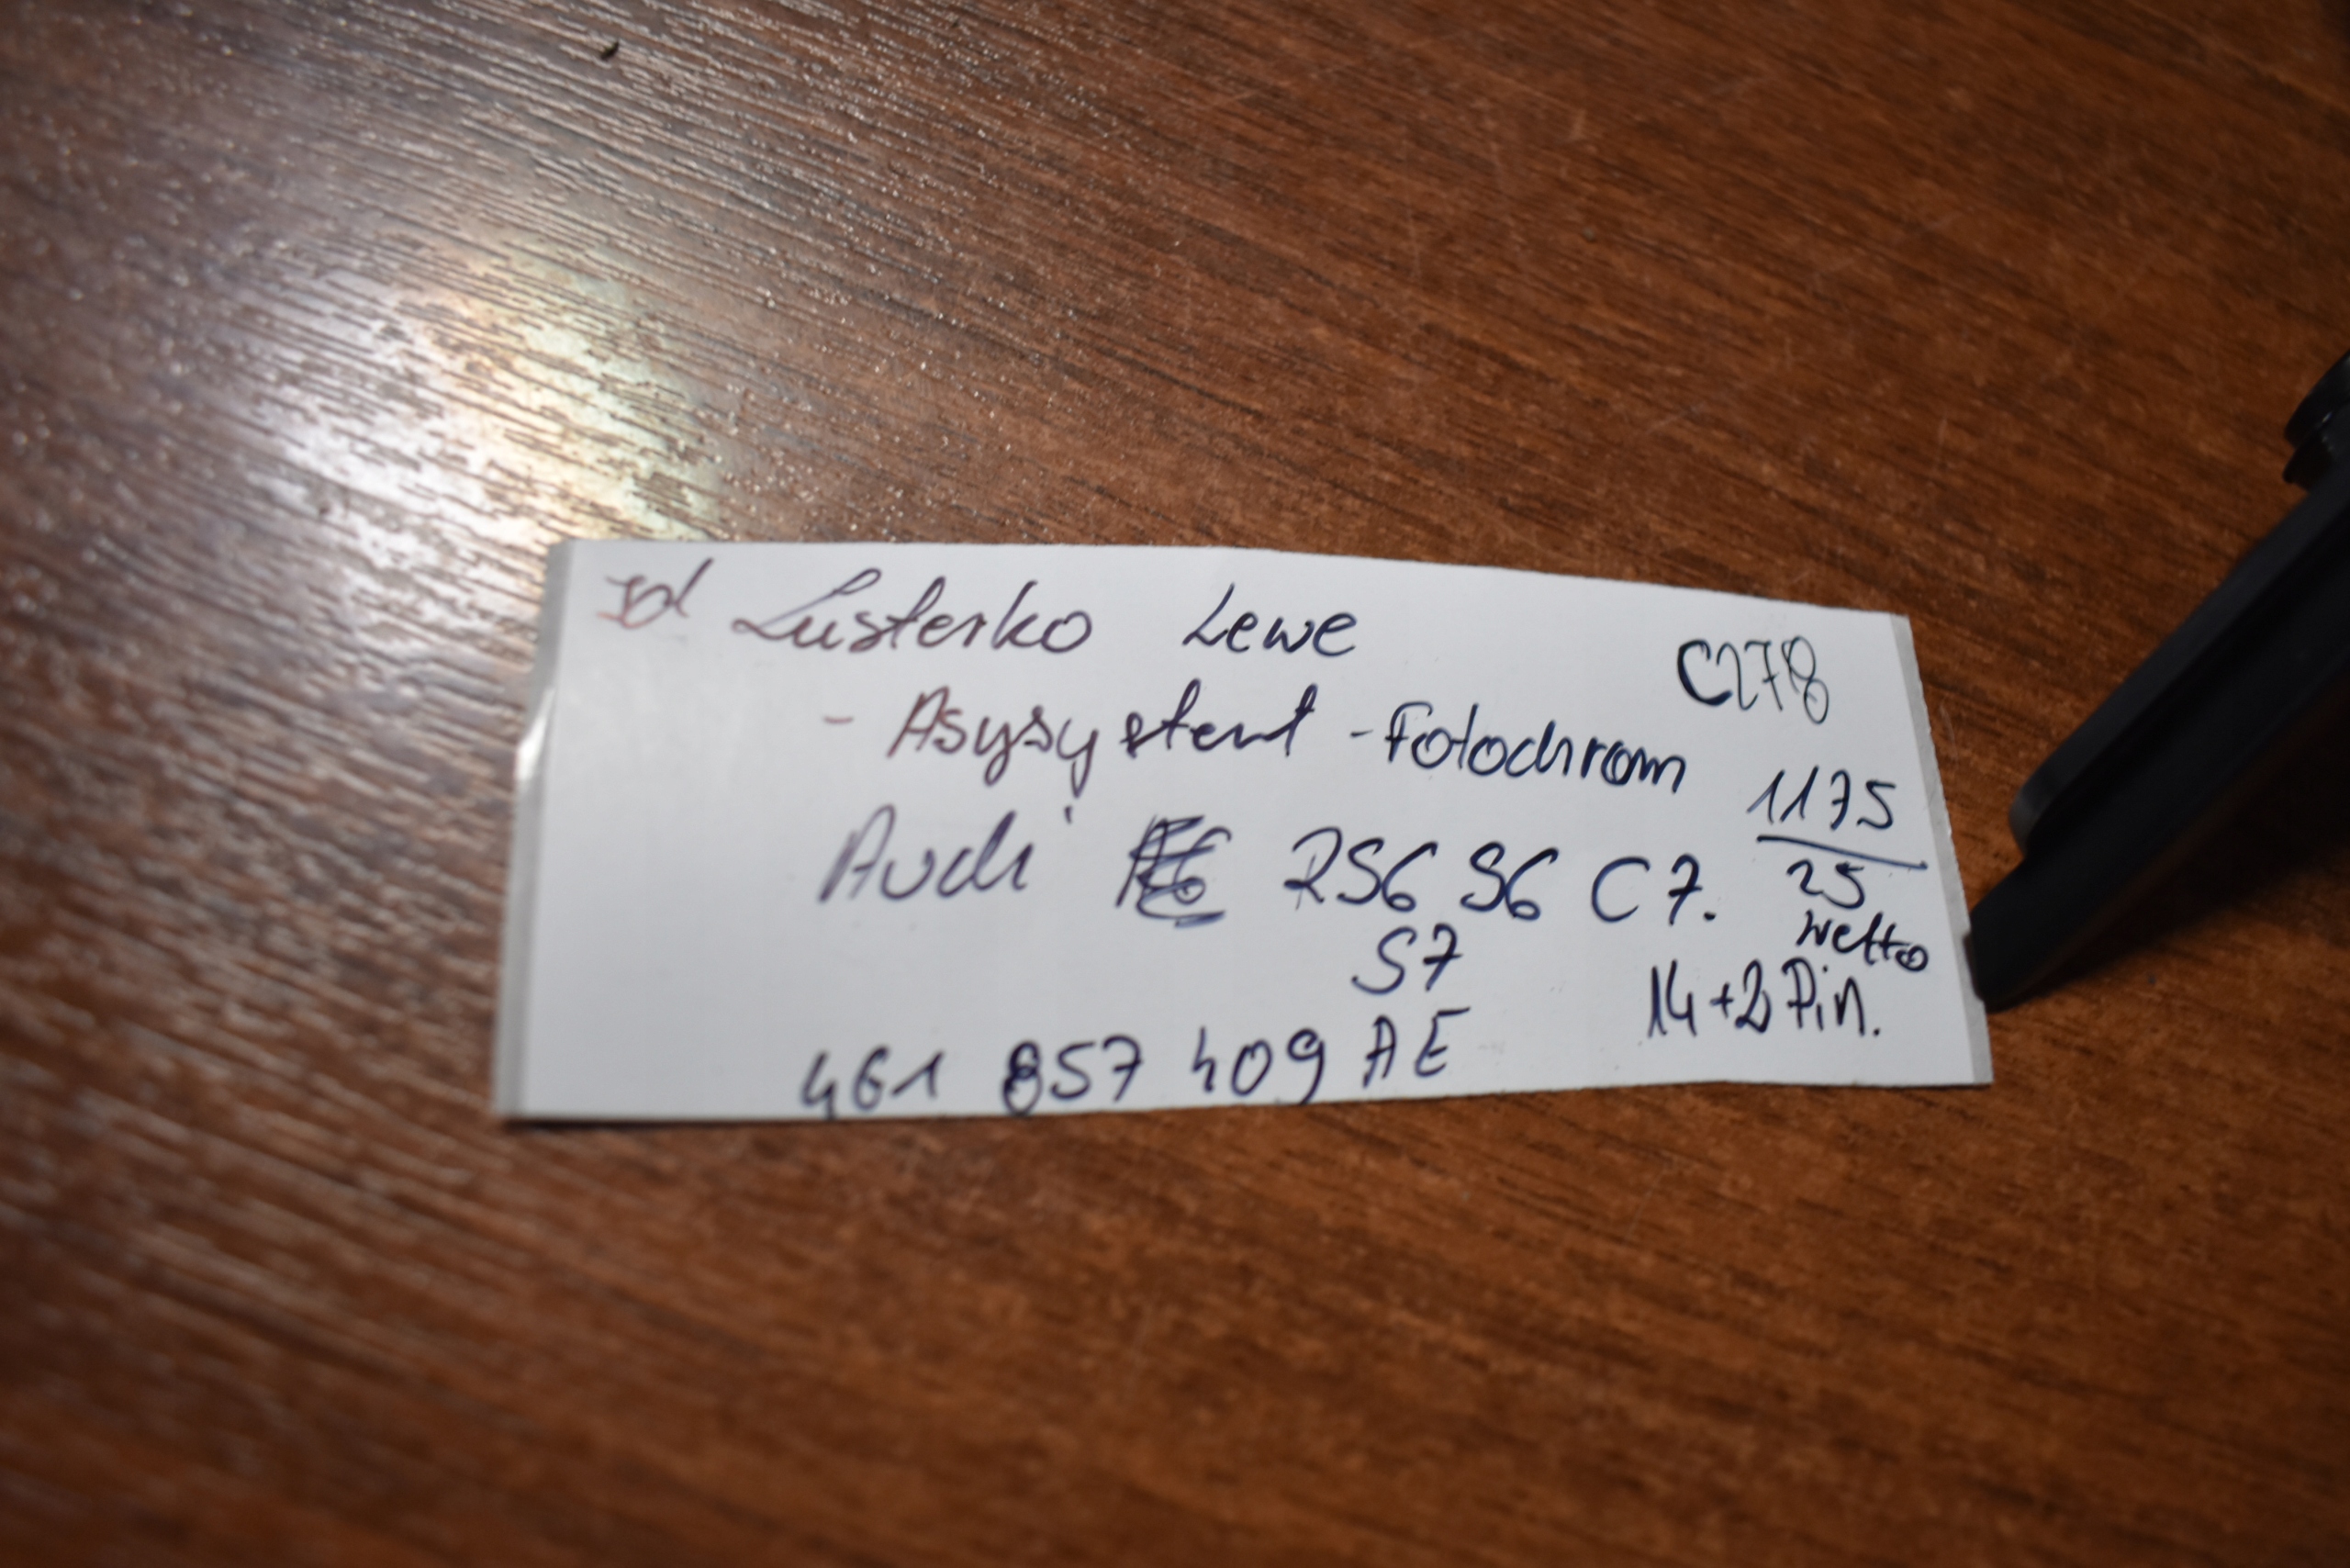 Lusterko Lewe
C278
- Asysystent - Fotochrom
1175
Audi RS6 S6 C7.
25
netto
S7
14+2 Pin.
4G1 857 409 AE